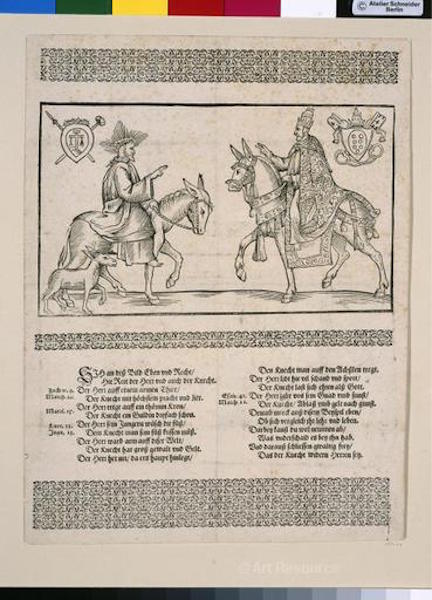 © Atelier Schneider
Berlin
SIch an diß Bild Eben und Recht/
Hie Reit der Herr und auch der Knecht.
Der Herr auff einem armen Thier/
Der Knecht mit höchstem pracht und zier.
Matth. 21.
Der Herr tregt auff ein thörnin Kron/
Der Knecht ein Gulden dreyfach schon.
Der Herr sein Jungern wäscht die füß/
Dem Knecht man sein füß küssen müß.
Der Herr ward arm auff diser Welt/
Der Knecht hat groß gewalt und Gelt.
Der Herr het nit/ da ers haupt hinlegt/
Den Knecht man auff den Achßlen tregt.
Der Herr lidt hie vil schand und spott/
Der Knecht laßt sich ehren alß Gott.
Der Herr gibt uns sein Gnad umb sunst/
Der Knecht/ Ablaß umb gelt nach gunst.
Demnach merck auß disem Beyspil eben/
Ob sich vergleich jhr lehr und leben.
Darbey kanst du wol nemmen ab/
Was underschaid es bey jhn hab.
Und darauß schliessen gwaltig frey/
Das der Knecht widern Herren sey.
© Art Resource